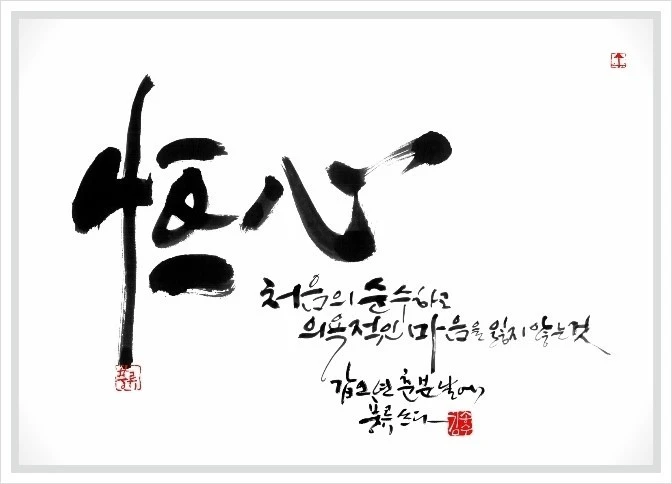 恒心
처음의 순수하고
의욕적인 마음을 잃지 않는 것
갑오년 춘봄날에
풍류 쓰다
풍류